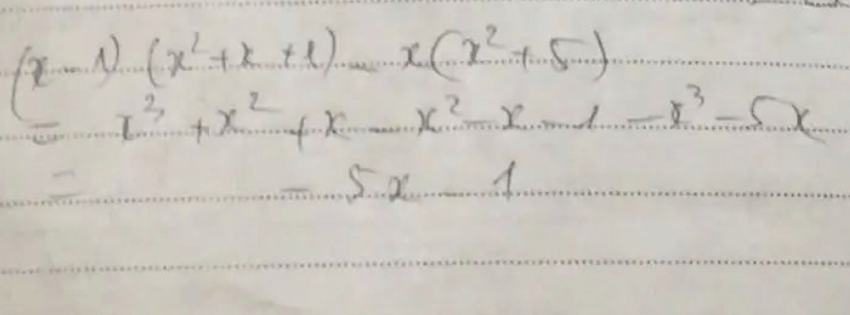 (x - 1) (x² + x + 1) - x(x² + 5)
= x³ + x² + x - x² - x - 1 - x³ - 5x
= - 5x - 1